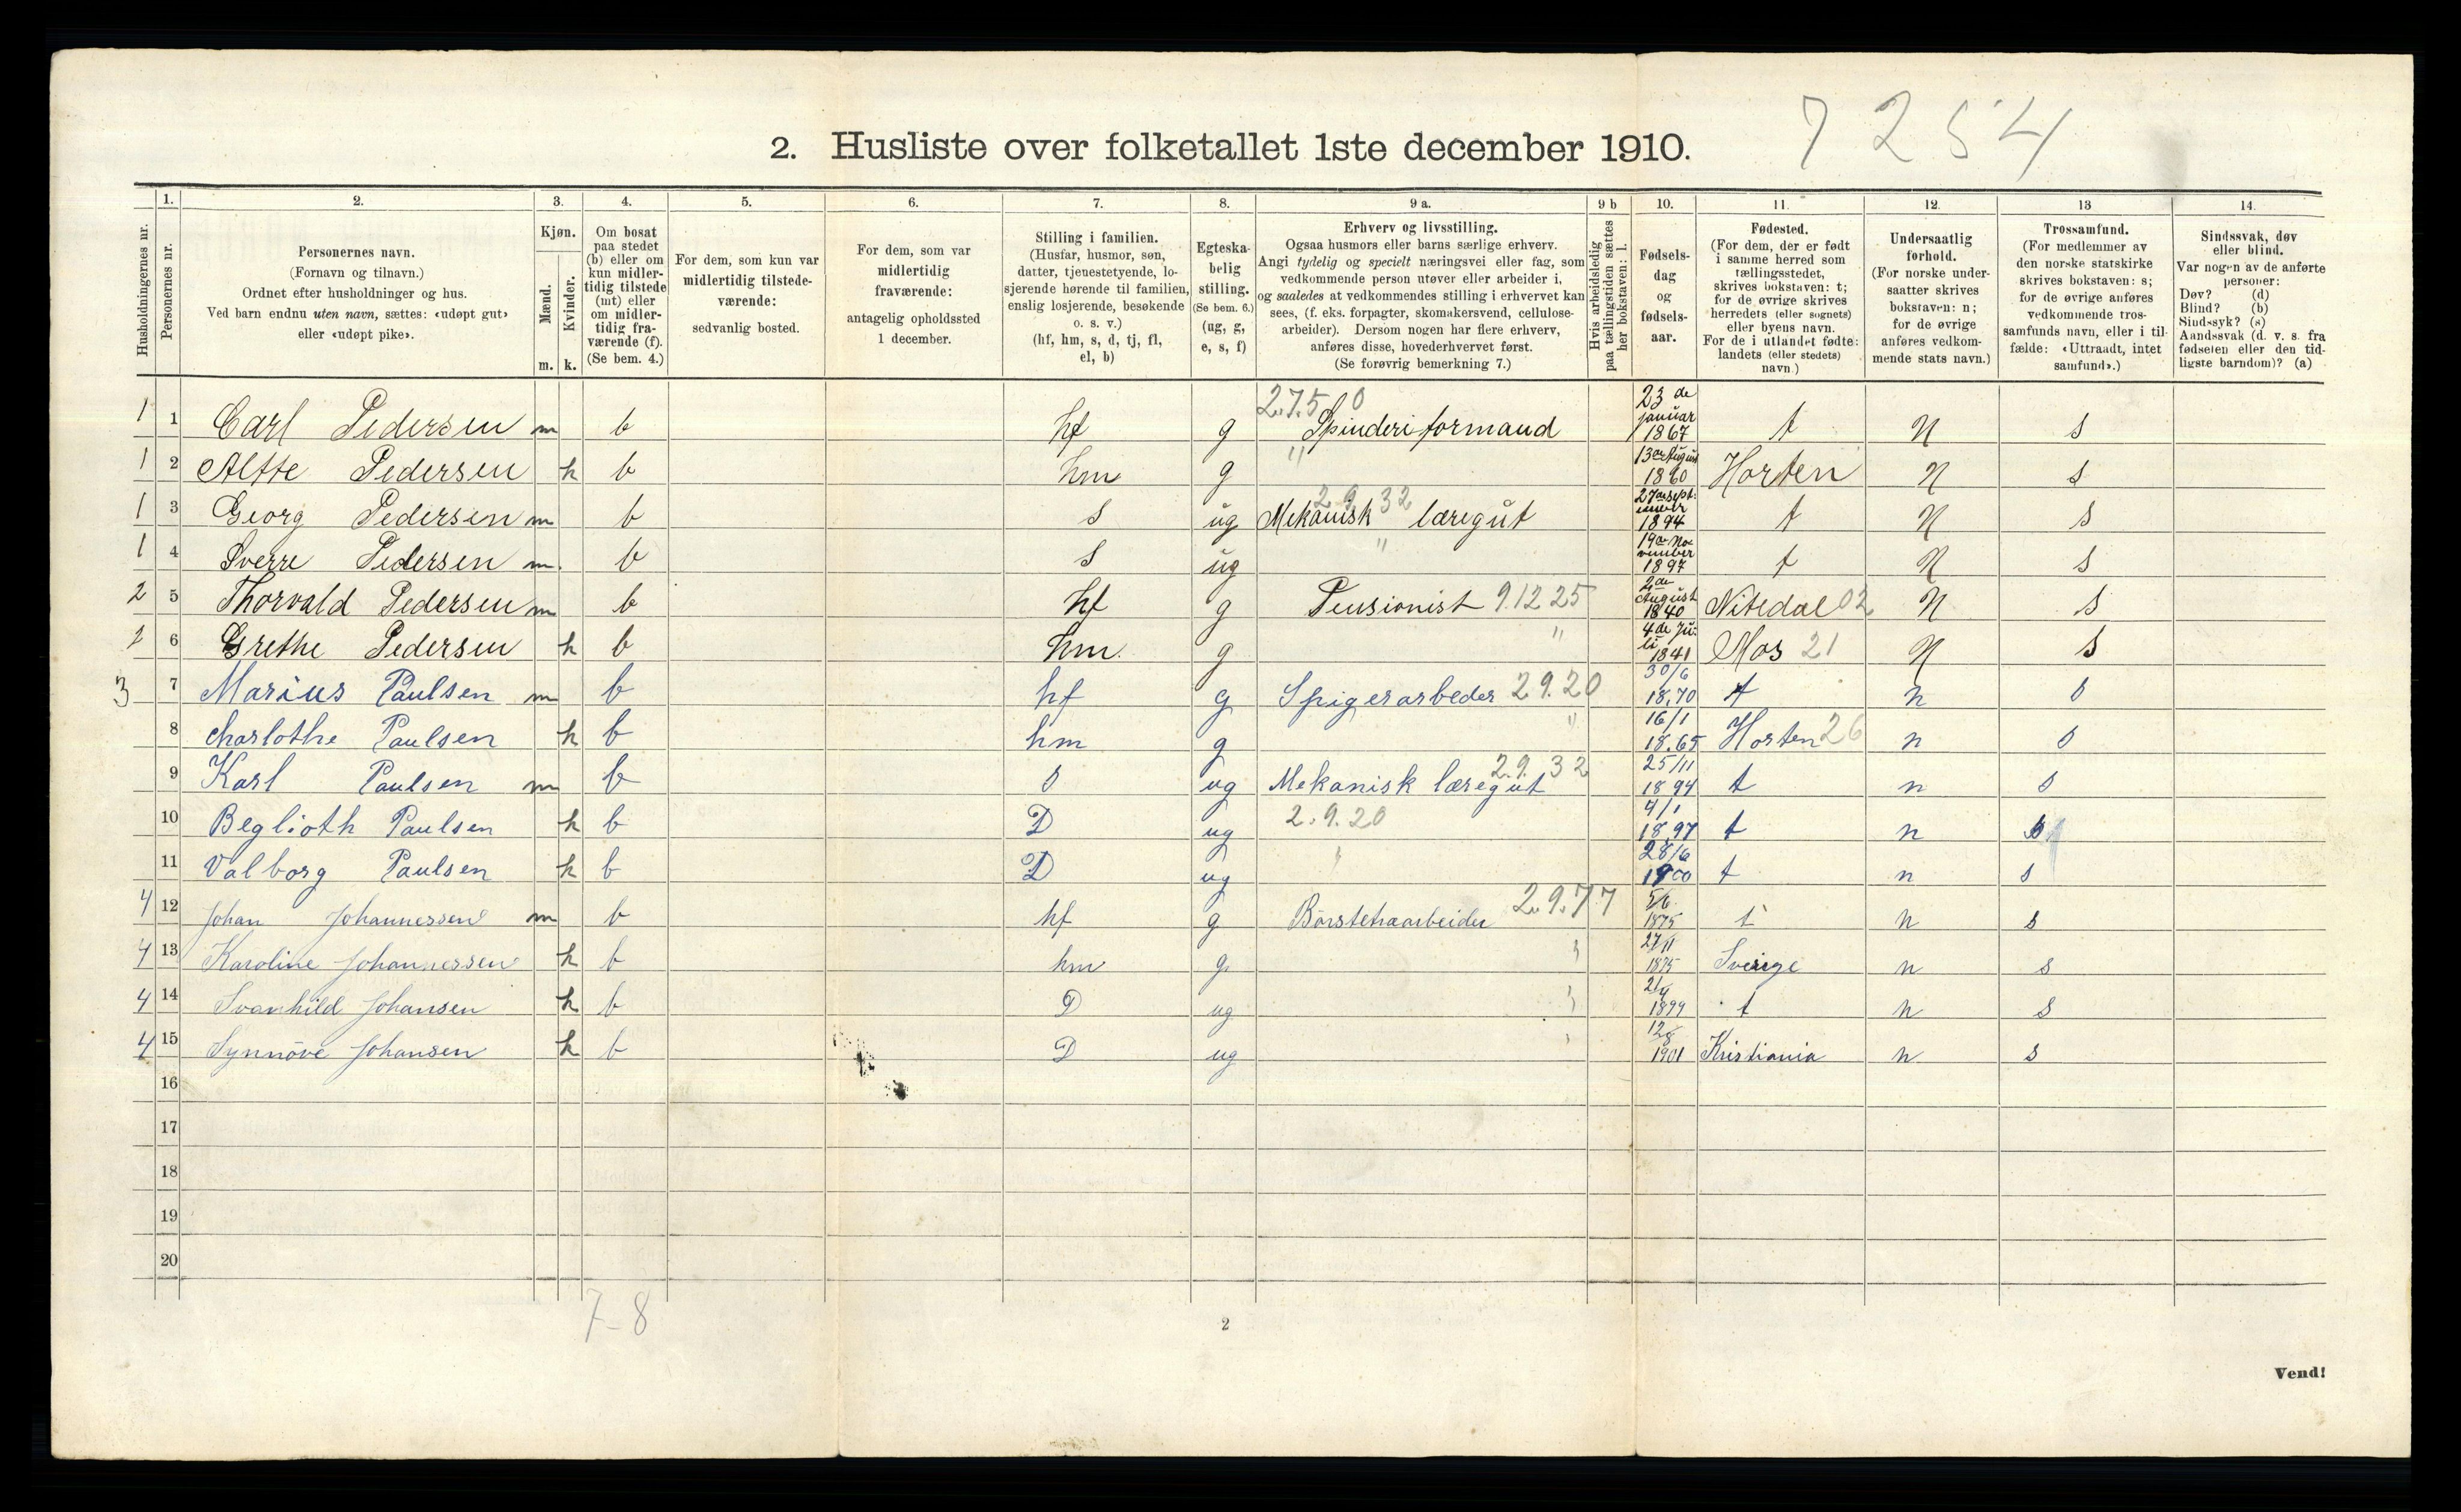 7254
2. Husliste over folketallet 1ste december 1910.
Husholdningernes nr.
1. Personernes nr.
2. Personernes navn. (Fornavn og tilnavn.) Ordnet efter husholdninger og hus. Ved barn endnu uten navn, sættes: «udøpt gut» eller «udøpt pike».
3. Kjøn. Mænd. m. Kvinder. k.
4. Om bosat paa stedet (b) eller om kun midlertidig tilstede (mt) eller om midlertidig fraværende (f). (Se bem. 4.)
5. For dem, som kun var midlertidig tilstedeværende: sedvanlig bosted.
6. For dem, som var midlertidig fraværende: antagelig opholdssted 1 december.
7. Stilling i familien. (Husfar, husmor, søn, datter, tjenestetyende, losjerende hørende til familien, enslig losjerende, besøkende o. s. v.) (hf, hm, s, d, tj, fl, el, b)
8. Egteskabelig stilling. (Se bem. 6.) (ug, g, e, s, f)
9 a. Erhverv og livsstilling. Ogsaa husmors eller barns særlige erhverv. Angi tydelig og specielt næringsvei eller fag, som vedkommende person utøver eller arbeider i, og saaledes at vedkommendes stilling i erhvervet kan sees, (f. eks. forpagter, skomakersvend, cellulosearbeider). Dersom nogen har flere erhverv, anføres disse, hovederhvervet først. (Se forøvrig bemerkning 7.)
9 b Hvis arbeidsledig paa tællingstiden sættes her bokstaven: l.
10. Fødselsdag og fødselsaar.
11. Fødested. (For dem, der er født i samme herred som tællingsstedet, skrives bokstaven: t; for de øvrige skrives herredets (eller sognets) eller byens navn. For de i utlandet fødte: landets (eller stedets) navn.)
12. Undersaatlig forhold. (For norske undersaatter skrives bokstaven: n; for de øvrige anføres vedkommende stats navn.)
13 Trossamfund. (For medlemmer av den norske statskirke skrives bokstaven: s; for de øvrige anføres vedkommende trossamfunds navn, eller i tilfælde: «Uttraadt, intet samfund».)
14. Sindssvak, døv eller blind. Var nogen av de anførte personer: Døv? (d) Blind? (b) Sindssyk? (s) Aandssvak (d. v. s. fra fødselen eller den tidligste barndom)? (a)
1 1 Carl Pedersen m b hf g 2.7.50 Spinderiformand 23de januar 1867 t N s
1 2 Alfte Pedersen k b hm g " 13de August 1860 Horten N s
1 3 Georg Pedersen m b s ug 2.9.32 Mekanisk læregut 27de september 1894 t N s
1 4 Sverre Pedersen m. b s ug " 19de November 1897 t N s
2 5 Thorvald Pedersen m b hf g Pensionist 9.12 25 2de August 1840 Nitedal 02 N s
2 6 Grethe Pedersen k b hm. g " 4de Juli 1841 Mos 21 N s
3 7 Marius Paulsen m b hf g Spigerarbeder 29.20 30/6 1870 t n s
8 Charlothe Paulsen k b hm g " 16/1 1865 Horten 26 n s
9 Karl Paulsen m b s ug Mekanisk læregut 2.9.32 25/11 1894 t n s
10 Beglioth Paulsen k b D ug 2.9.20 4/1 1897 t n s
11 Valborg Paulsen k b D ug " 28/6 1900 t n s
4 12 Johan Johannessen m b hf g Børstetraarbeider 2.9.77 5/6 1875 t n s
4 13 Karoline Johannessen k b hm g. " 27/11 1875 Sverige n s
4 14 Svanhild Johansen k b D ug " 21/4 1899 t n s
4 15 Synnøve Johansen k b D ug " 12/8 1901 Kristiania n s
16
17
18
19
20
7-8
2
Vend!